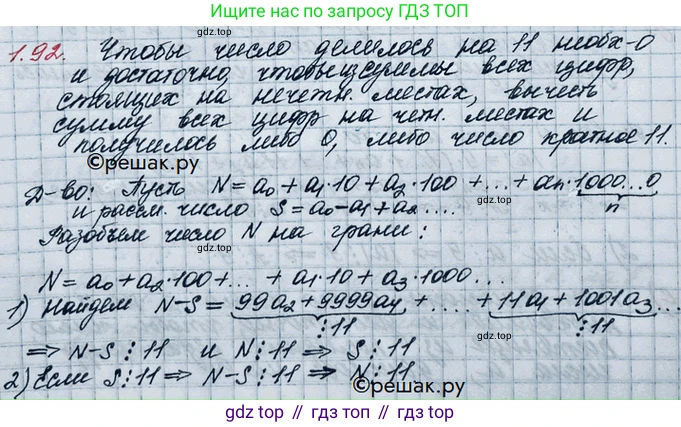 Ищите нас по запросу на гдз.top
гдз ТОП
1.92. Чтобы число делилось на 11 необх-о
и достаточно, чтобы из суммы всех цифр,
стоящих на нечетн. местах, вычесть
сумму всех цифр на четн. местах и
получилось либо 0, либо число кратное 11.
©решак.ру ©решак.ру
Д-во: Пусть N = a₀ + a₁·10 + a₂·100 + ... + aₙ·1000...0
n
и рассм. число S = a₀ - a₁ + a₂ ....
Разобьем число N на грани:
N = a₀ + a₂·100 + ... + a₁·10 + a₃·1000...
1) Найдем N-S = 99a₂ + 9999a₄ + .... + 11a₁ + 1001a₃...
⋮11 ⋮11
⇒ N-S⋮11 и N⋮11 ⇒ S⋮11
2) Если S⋮11 ⇒ N-S⋮11 ⇒ N⋮11
©решак.ру
gdz top // гдз топ // gdz.top